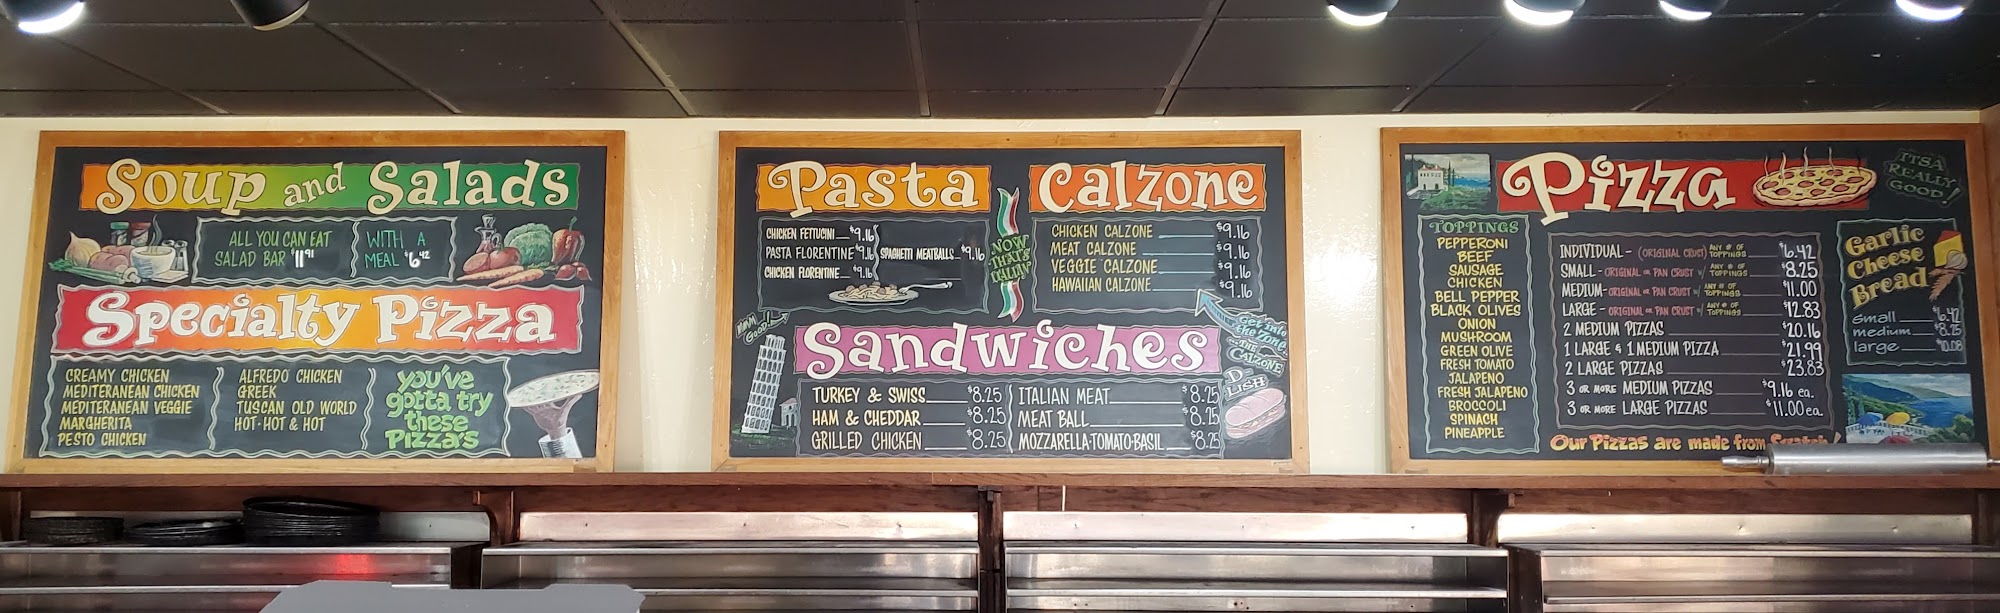 Soup and Salads
ALL YOU CAN EAT
SALAD BAR $11.91
WITH A
MEAL $6.42
Specialty Pizza
CREAMY CHICKEN
MEDITERANEAN CHICKEN
MEDITERANEAN VEGGIE
MARGHERITA
PESTO CHICKEN
ALFREDO CHICKEN
GREEK
TUSCAN OLD WORLD
HOT·HOT & HOT
you've
gotta try
these
Pizza's
Pasta
CHICKEN FETTUCINI $9.16
PASTA FLORENTINE $9.16
CHICKEN FLORENTINE $9.16
SPAGHETTI MEATBALLS $9.16
NOW
THAT'S
ITALIAN
Calzone
CHICKEN CALZONE $9.16
MEAT CALZONE $9.16
VEGGIE CALZONE $9.16
HAWAIIAN CALZONE $9.16
MMM
GOOD!
Sandwiches
Get into
the Zone
THE
CALZONE
D-
LISH
TURKEY & SWISS $8.25
HAM & CHEDDAR $8.25
GRILLED CHICKEN $8.25
ITALIAN MEAT $8.25
MEAT BALL $8.25
MOZZARELLA·TOMATO·BASIL $8.25
Pizza
ITSA
REALLY
GOOD!
TOPPINGS
PEPPERONI
BEEF
SAUSAGE
CHICKEN
BELL PEPPER
BLACK OLIVES
ONION
MUSHROOM
GREEN OLIVE
FRESH TOMATO
JALAPENO
FRESH JALAPENO
BROCCOLI
SPINACH
PINEAPPLE
INDIVIDUAL - (ORIGINAL CRUST) ANY # OF TOPPINGS $6.42
SMALL - ORIGINAL OR PAN CRUST W/ ANY # OF TOPPINGS $8.25
MEDIUM - ORIGINAL OR PAN CRUST W/ ANY # OF TOPPINGS $11.00
LARGE - ORIGINAL OR PAN CRUST W/ ANY # OF TOPPINGS $12.83
2 MEDIUM PIZZAS $20.16
1 LARGE & 1 MEDIUM PIZZA $21.99
2 LARGE PIZZAS $23.83
3 OR MORE MEDIUM PIZZAS $9.16 ea.
3 OR MORE LARGE PIZZAS $11.00 ea.
Our Pizzas are made from Scratch!
Garlic
Cheese
Bread
small $6.42
medium $8.25
large $10.08